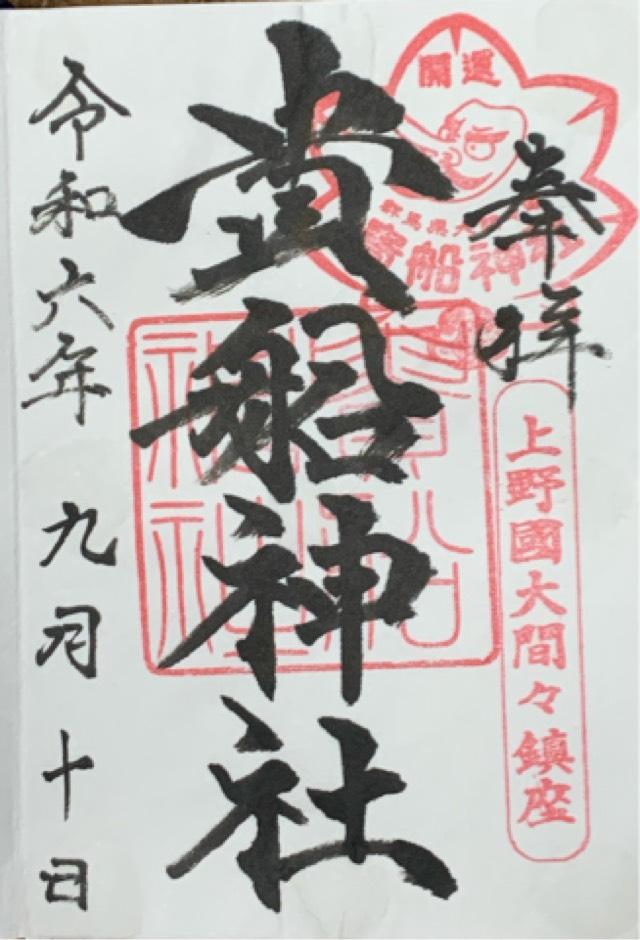 奉拝
開運
群馬県大
貴船神社
上野國大間々鎮座
貴船神社
貴船神社
令和六年 九月 十日